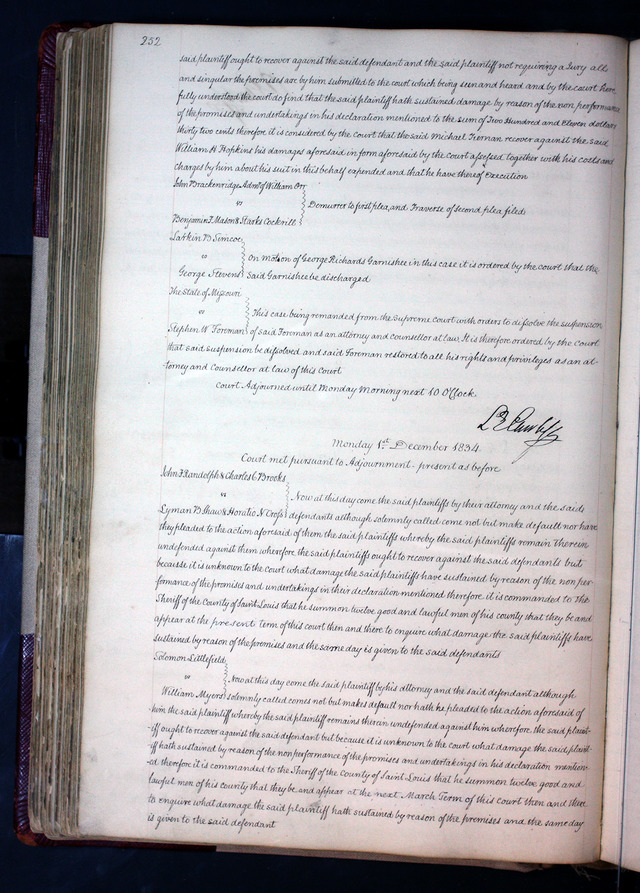 252
said plaintiff ought to recover against the said defendant and the said plaintiff not requiring a Jury all
and singular the premises are by him submitted to the court which being seen and heard and by the court here
fully understood the court do find that the said plaintiff hath sustained damage by reason of the non performance
of the promises and undertakings in his declaration mentioned to the sum of Two Hundred and Eleven dollars
thirty two cents therefore it is considered by the Court that the said Michael Tiernan recover against the said
William H Hopkins his damages aforesaid in form aforesaid by the court assessed together with his costs and
charges by him about his suit in this behalf expended and that he have thereof Execution
John Brackenridge Admr of William Orr
vs
Demurrer to first plea, and Traverse of second plea filed
Benjamin F Mason & Starks Cockrill
Larkin B Simcoe
vs
On motion of George Richards Garnishee in this case it is ordered by the court that the
George Stevens said Garnishee be discharged
The State of Missouri
vs
This case being remanded from the Supreme Court with orders to dissolve the suspension
Stephen W Foreman of said Foreman as an attorney and counsellor at law. It is therefore ordered by the court
that said suspension be dissolved and said Foreman restored to all his rights and privileges as an at-
torney and Counsellor at law of this Court
Court Adjourned until Monday Morning next 10 O'Clock
Monday 1st December 1834
Court met pursuant to Adjournment present as before
John F Randolph & Charles C Brooks
vs
Now at this day come the said plaintiffs by their attorney and the said
Lyman B Shaw & Horatio N Cross defendants although solemnly called come not but make default nor have
they pleaded to the action aforesaid of them the said plaintiffs whereby the said plaintiffs remain therein
undefended against them wherefore the said plaintiffs ought to recover against the said defendants but
because it is unknown to the court what damage the said plaintiffs have sustained by reason of the non per-
formance of the promises and undertakings in their declaration mentioned therefore it is commanded to the
Sheriff of the County of Saint Louis that he summon twelve good and lawful men of his county that they be and
appear at the present term of this court then and there to enquire what damage the said plaintiffs have
sustained by reason of the premises and the same day is given to the said defendants
Solomon Littlefield
vs
Now at this day come the said plaintiff by his attorney and the said defendant although
William Myers solemnly called comes not but makes default nor hath he pleaded to the action aforesaid of
him the said plaintiff whereby the said plaintiff remains therein undefended against him wherefore the said plaint-
iff ought to recover against the said defendant but because it is unknown to the court what damage the said plaint-
iff hath sustained by reason of the nonperformance of the promises and undertakings in his declaration mention-
ed therefore it is commanded to the Sheriff of the County of Saint Louis that he summon twelve good and
lawful men of his county that they be and appear at the next March Term of this court then and there
to enquire what damage the said plaintiff hath sustained by reason of the premises and the same day
is given to the said defendant